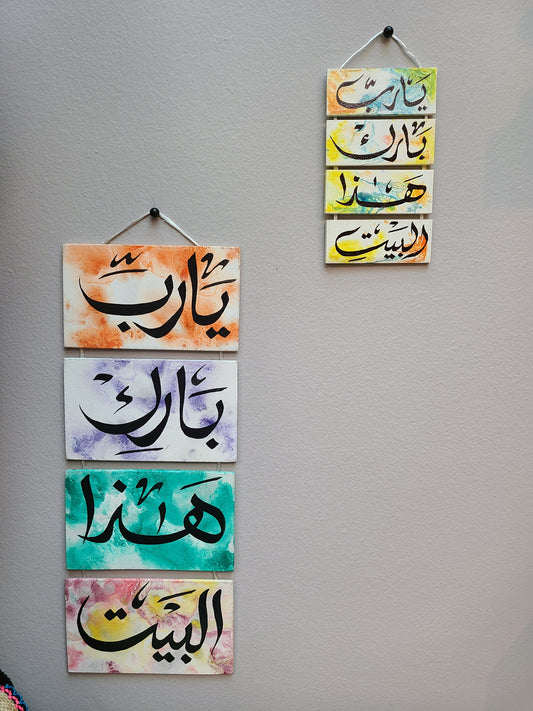 يَا رَبِّ
بَارِكْ
هَذَا
البَيْت
يَا رَبّ
بَارك
هَذا
البَيْتِ